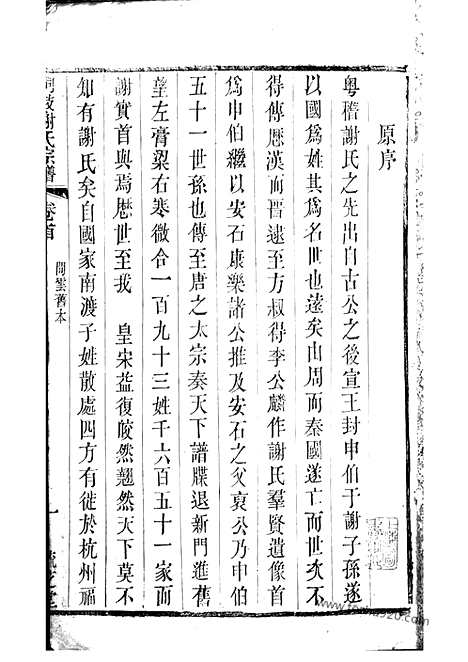 原序
粤稽謝氏之先出自古公之後宣王封申伯于謝子孫遂
以國爲姓其爲名世也遠矣由周而秦國遂亡而世次不
得傳歷漢而晋逮至方叔得李公麟作謝氏羣賢遺像首
爲申伯繼以安石康樂諸公推及安石之父裒公乃申伯
五十一世孫也傳至唐之太宗奏天下譜牒退新門進舊
望左膏粱右寒微合一百九十三姓千六百五十一家而
謝實首與焉歷世至我　皇宋益復皎然翹然天下莫不
知有謝氏矣自國家南渡子姓散處四方有徙於杭州福
謝氏宗譜
卷首
間雲舊本
一